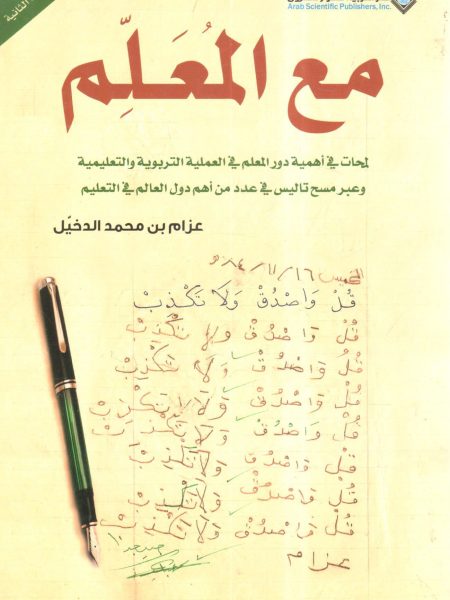 الثانية
Arab Scientific Publishers, Inc.
مع المُعَلِّم
لمحات في أهمية دور المعلم في العملية التربوية والتعليمية
وعبر مسح تاليس في عدد من أهم دول العالم في التعليم
عزام بن محمد الدخيّل
الخميس ١٦/١١/٨٤
قُلْ وَاصْدُقْ وَلَا تَكْذِبْ
قُلْ وَاصْدُقْ وَلَا تَكْذِبْ
قُلْ وَاصْدُقْ وَلَا تَكْذِبْ
قُلْ وَاصْدُقْ وَلَا تَكْذِبْ
قُلْ وَاصْدُقْ وَلَا تَكْذِبْ
قُلْ وَاصْدُقْ وَلَا تَكْذِبْ
قُلْ وَاصْدُقْ وَلَا تَكْذِبْ
قُلْ وَاصْدُقْ وَلَا تَكْذِبْ
عزام